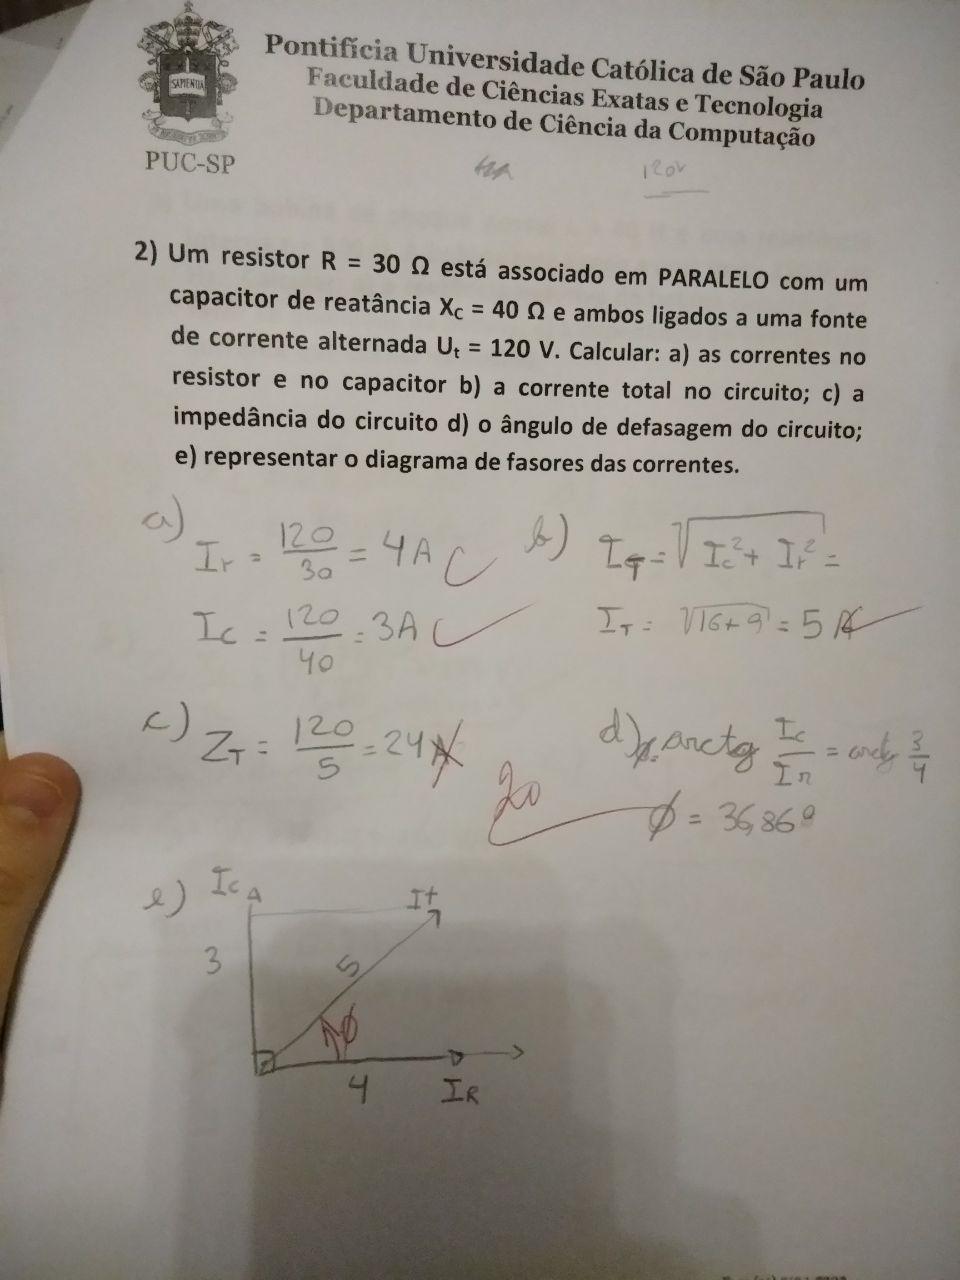 Pontifícia Universidade Católica de São Paulo
Faculdade de Ciências Exatas e Tecnologia
Departamento de Ciência da Computação
SAPIENTIA
PUC-SP
120V
2) Um resistor R = 30 Ω está associado em PARALELO com um
capacitor de reatância X_C = 40 Ω e ambos ligados a uma fonte
de corrente alternada U_t = 120 V. Calcular: a) as correntes no
resistor e no capacitor b) a corrente total no circuito; c) a
impedância do circuito d) o ângulo de defasagem do circuito;
e) representar o diagrama de fasores das correntes.
a) I_r = 120/30 = 4A
I_c = 120/40 = 3A
b) I_T = √(I_c² + I_r²) =
I_T = √(16+9) = 5 A
c) Z_T = 120/5 = 24
d) arctg I_c/I_r = arctg 3/4
ϕ = 36,86º
2,0
e) I_c
It
3
5
ϕ
4
I_R